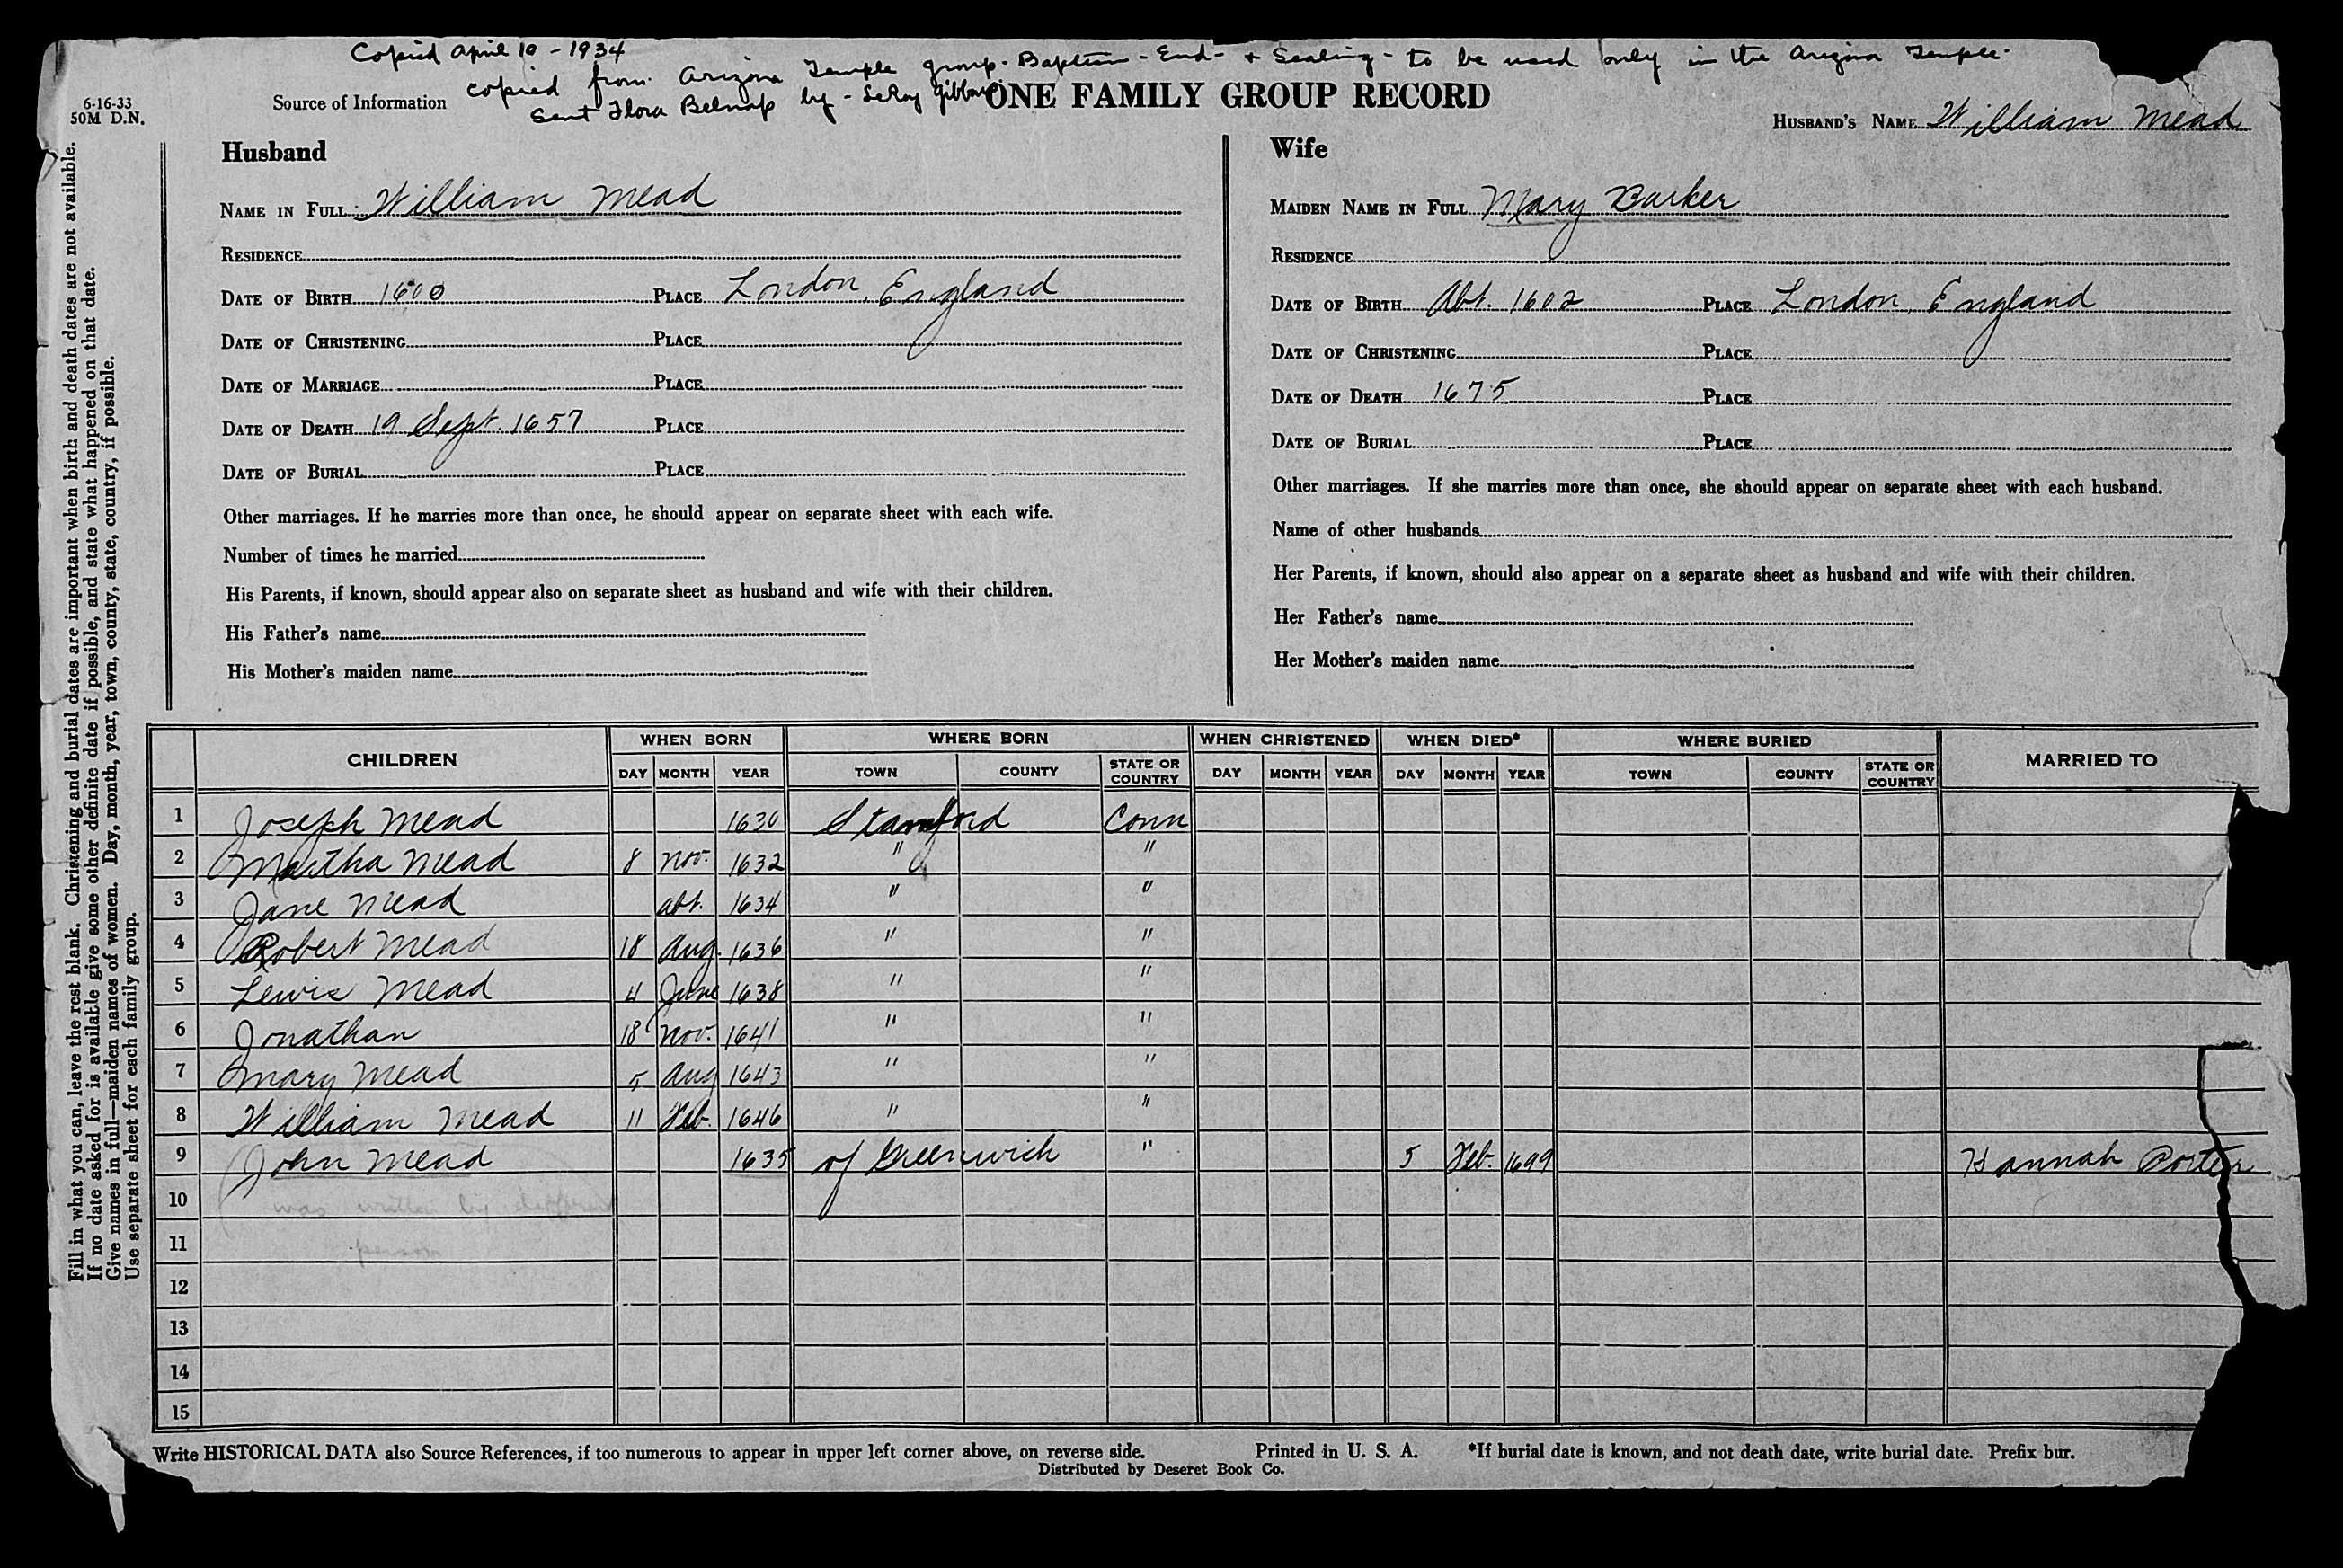 Copied April 10 - 1934
copied from Arizona Temple group - Baptism - End - & Sealing - to be used only in the Arizona Temple.
Sent Flora Belnap by - LeRoy Gibbons
6-16-33
50M D.N.
Source of Information
ONE FAMILY GROUP RECORD
HUSBAND'S NAME William Mead
Husband
NAME IN FULL William Mead
RESIDENCE
DATE OF BIRTH 1600 PLACE London, England
DATE OF CHRISTENING PLACE
DATE OF MARRIAGE PLACE
DATE OF DEATH 19 Sept. 1657 PLACE
DATE OF BURIAL PLACE
Other marriages. If he marries more than once, he should appear on separate sheet with each wife.
Number of times he married
His Parents, if known, should appear also on separate sheet as husband and wife with their children.
His Father's name
His Mother's maiden name
Wife
MAIDEN NAME IN FULL Mary Barker
RESIDENCE
DATE OF BIRTH Abt. 1602 PLACE London, England
DATE OF CHRISTENING PLACE
DATE OF DEATH 1675 PLACE
DATE OF BURIAL PLACE
Other marriages. If she marries more than once, she should appear on separate sheet with each husband.
Name of other husbands
Her Parents, if known, should also appear on a separate sheet as husband and wife with their children.
Her Father's name
Her Mother's maiden name
Fill in what you can, leave the rest blank. Christening and burial dates are important when birth and death dates are not available.
If no date asked for is available give some other definite date if possible, and state what happened on that date.
Give names in full—maiden names of women. Day, month, year, town, county, state, country, if possible.
Use separate sheet for each family group.
CHILDREN WHEN BORN WHERE BORN WHEN CHRISTENED WHEN DIED* WHERE BURIED MARRIED TO
DAY MONTH YEAR TOWN COUNTY STATE OR COUNTRY DAY MONTH YEAR DAY MONTH YEAR TOWN COUNTY STATE OR COUNTRY
1 Joseph Mead 1630 Stamford Conn
2 Martha Mead 8 Nov. 1632 " "
3 Jane Mead abt. 1634 " "
4 Robert Mead 18 Aug. 1636 " "
5 Lewis Mead 4 June 1638 " "
6 Jonathan 18 Nov. 1641 " "
7 Mary Mead 5 Aug 1643 " "
8 William Mead 11 Feb. 1646 " "
9 John Mead 1635 of Greenwich " 5 Feb. 1699 Hannah Potter
10 was written by different
11 person
12
13
14
15
Write HISTORICAL DATA also Source References, if too numerous to appear in upper left corner above, on reverse side. Printed in U. S. A. *If burial date is known, and not death date, write burial date. Prefix bur.
Distributed by Deseret Book Co.